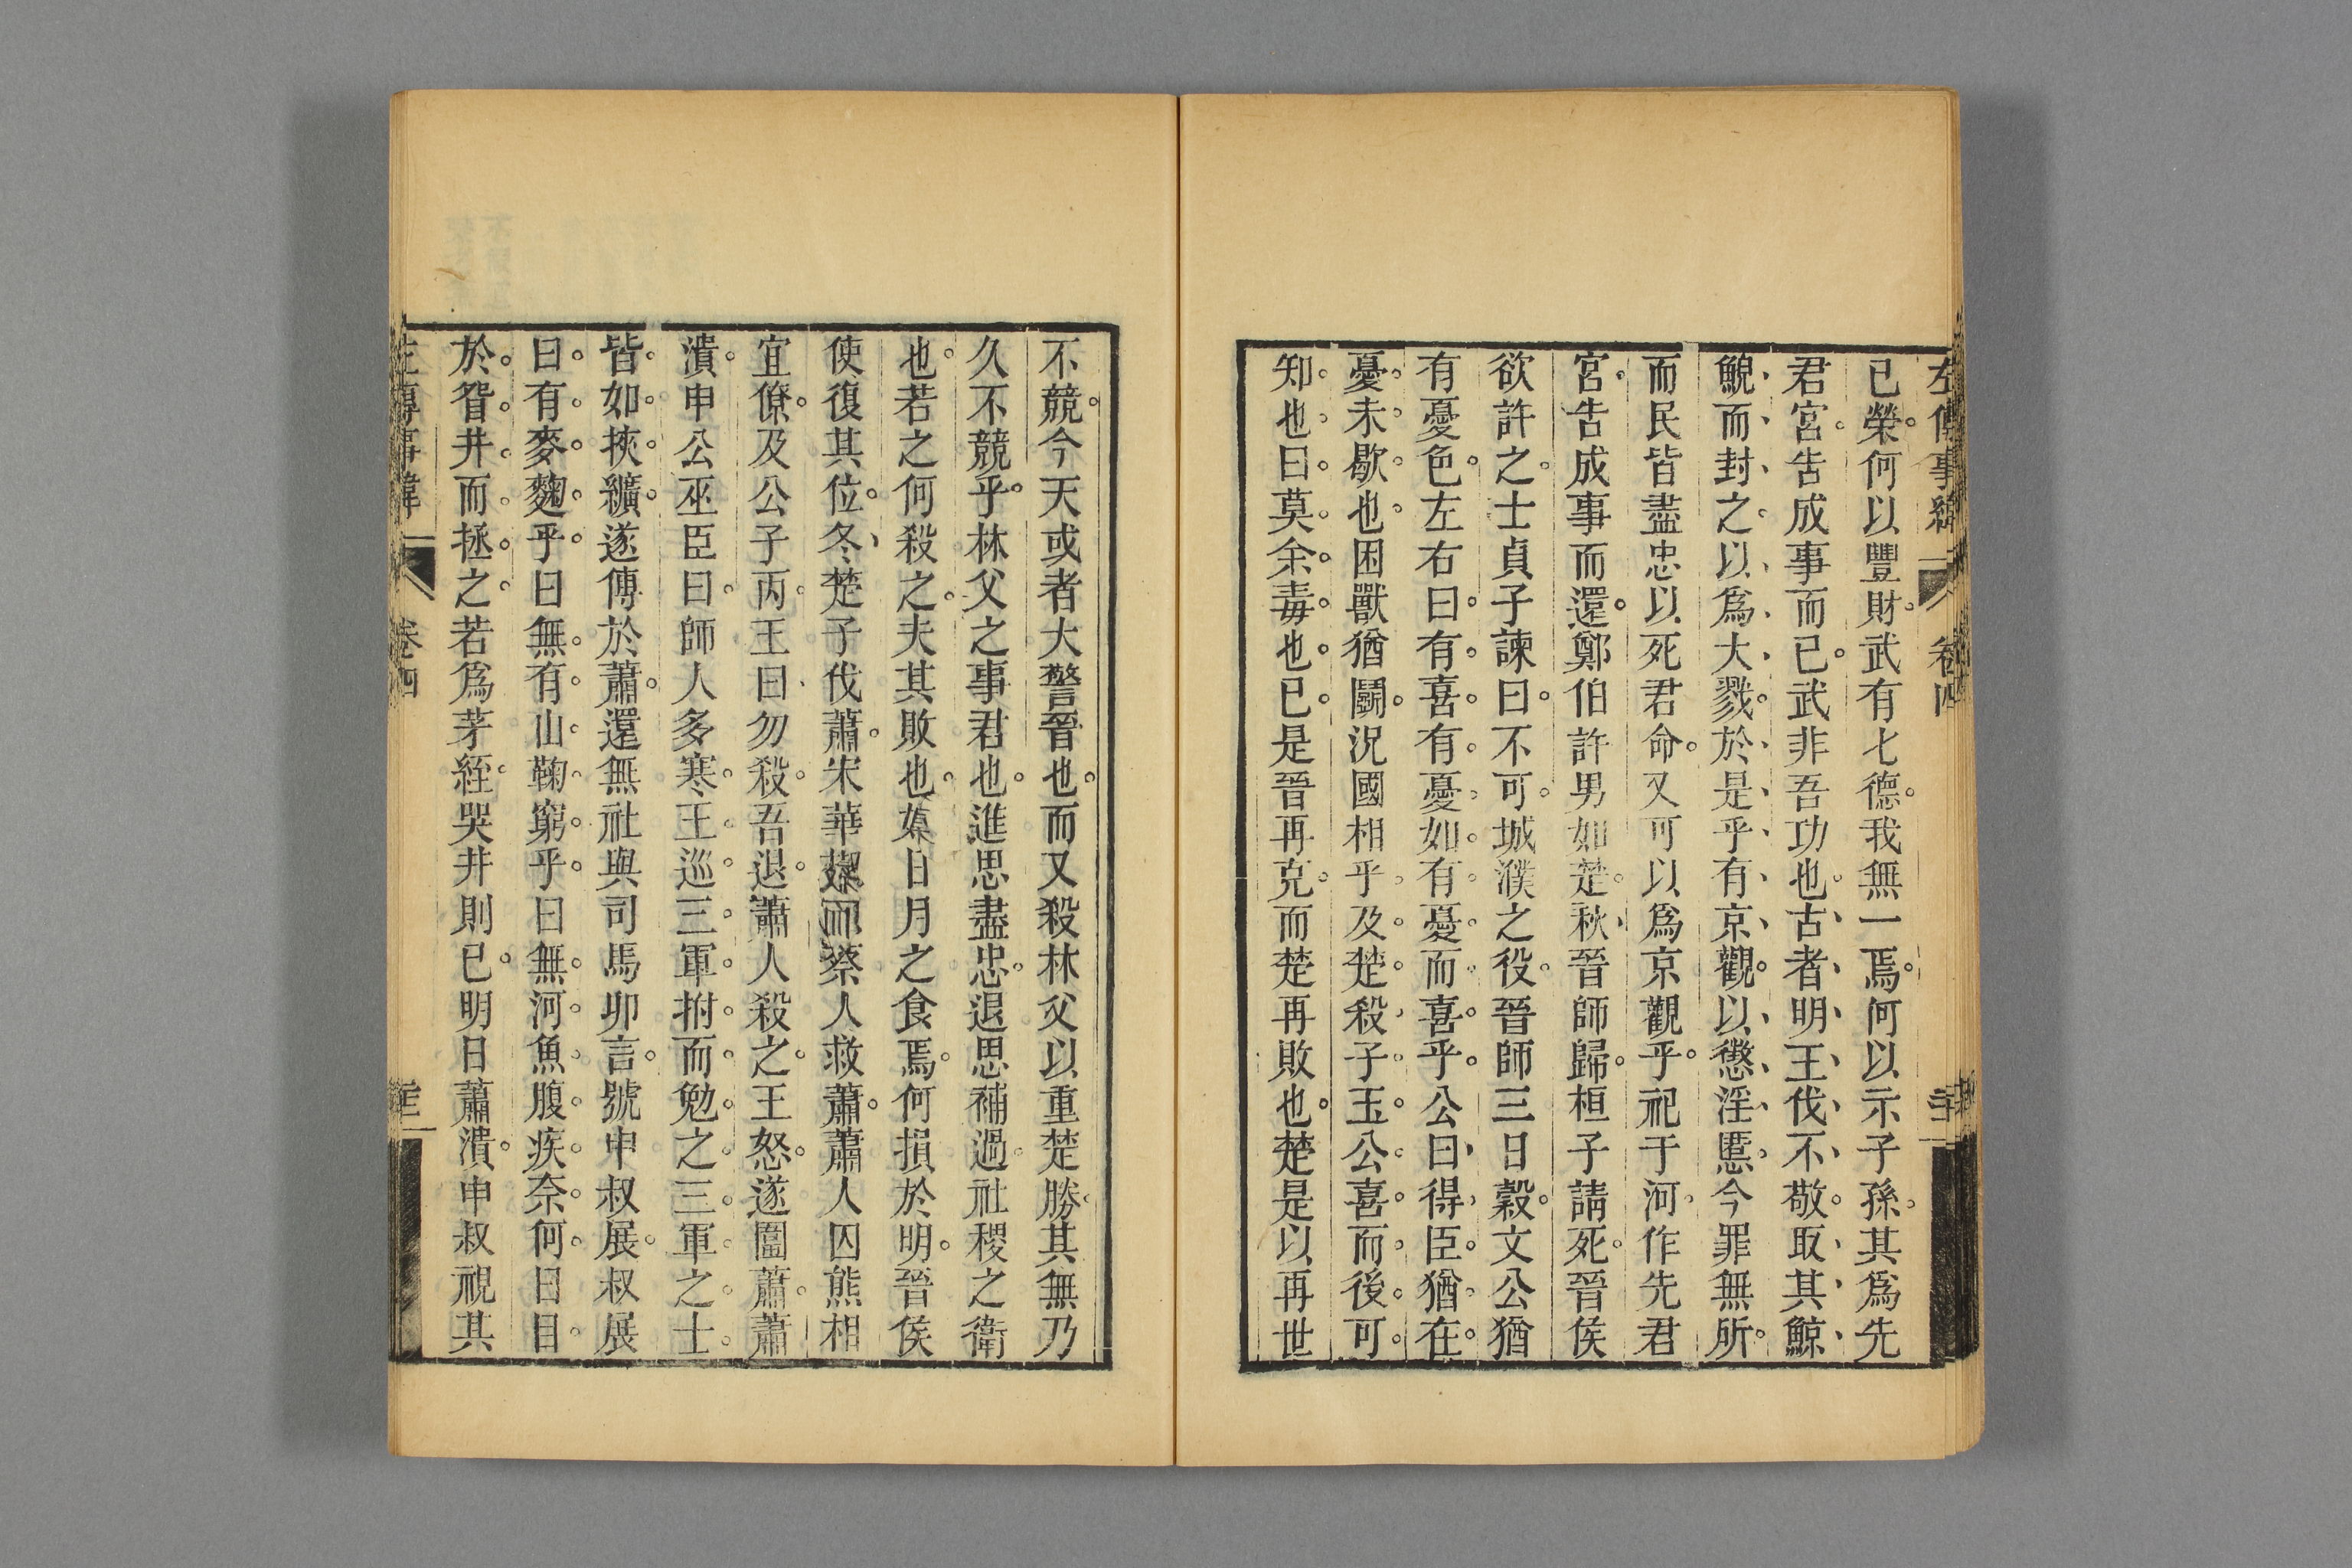 左傳事緯 卷四
已榮何以豐財武有七德我無一焉何以示子孫其爲先
君宮告成事而已武非吾功也古者明王伐不敬取其鯨
鯢而封之以爲大戮於是乎有京觀以懲淫慝今罪無所
而民皆盡忠以死君命又可以爲京觀乎祀于河作先君
宮告成事而還鄭伯許男如楚秋晉師歸桓子請死晉侯
欲許之士貞子諫曰不可城濮之役晉師三日穀文公猶
有憂色左右曰有喜有憂如有憂而喜乎公曰得臣猶在
憂未歇也困獸猶鬭況國相乎及楚殺子玉公喜而後可
知也曰莫余毒也已是晉再克而楚再敗也楚是以再世
不競今天或者大警晉也而又殺林父以重楚勝其無乃
久不競乎林父之事君也進思盡忠退思補過社稷之衛
也若之何殺之夫其敗也如日月之食焉何損於明晉侯
使復其位冬楚子伐蕭宋華椒而蔡人救蕭蕭人囚熊相
宜僚及公子丙王曰勿殺吾退蕭人殺之王怒遂圍蕭蕭
潰申公巫臣曰師人多寒王巡三軍拊而勉之三軍之士
皆如挾纊遂傳於蕭還無社與司馬卯言號申叔展叔展
曰有麥麴乎曰無有山鞠窮乎曰無河魚腹疾奈何曰目
於眢井而拯之若爲茅絰哭井則已明日蕭潰申叔視其
左傳事緯 卷四